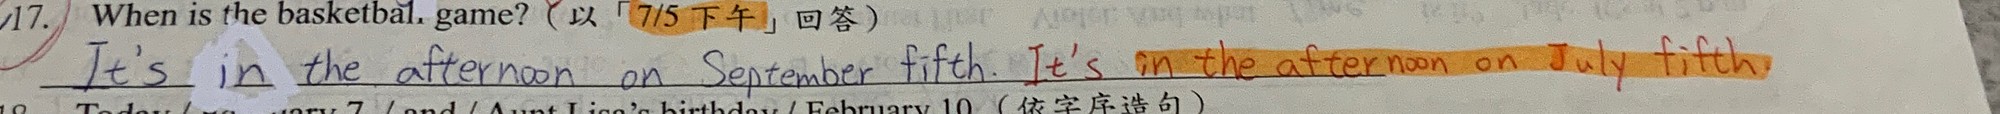 17. When is the basketball game? (以「7/5 下午」回答)
It's in the afternoon on September fifth. It's in the afternoon on July fifth.
Today / / and / Aunt Lisa's birthday / February 10 (依字序造句)